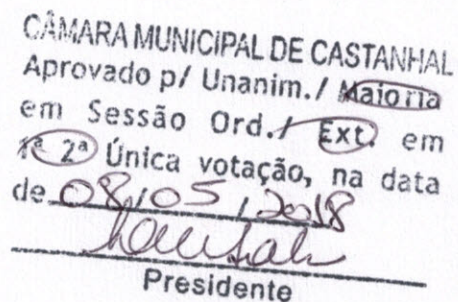 CÂMARA MUNICIPAL DE CASTANHAL
Aprovado p/ Unanim./ Maioria
em Sessão Ord./ Ext. em
1ª 2ª Única votação, na data
de 08/05/2018
Presidente